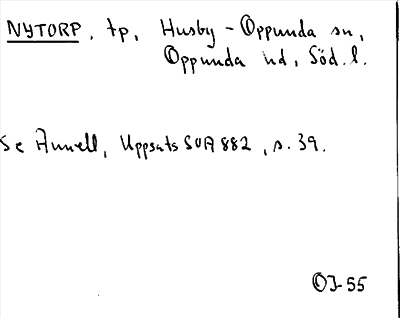 NYTORP, tp, Husby-Oppunda sn,
Oppunda hd, Söd. l.
Se Annell, Uppsats SOA 882, s. 39.
OJ-55